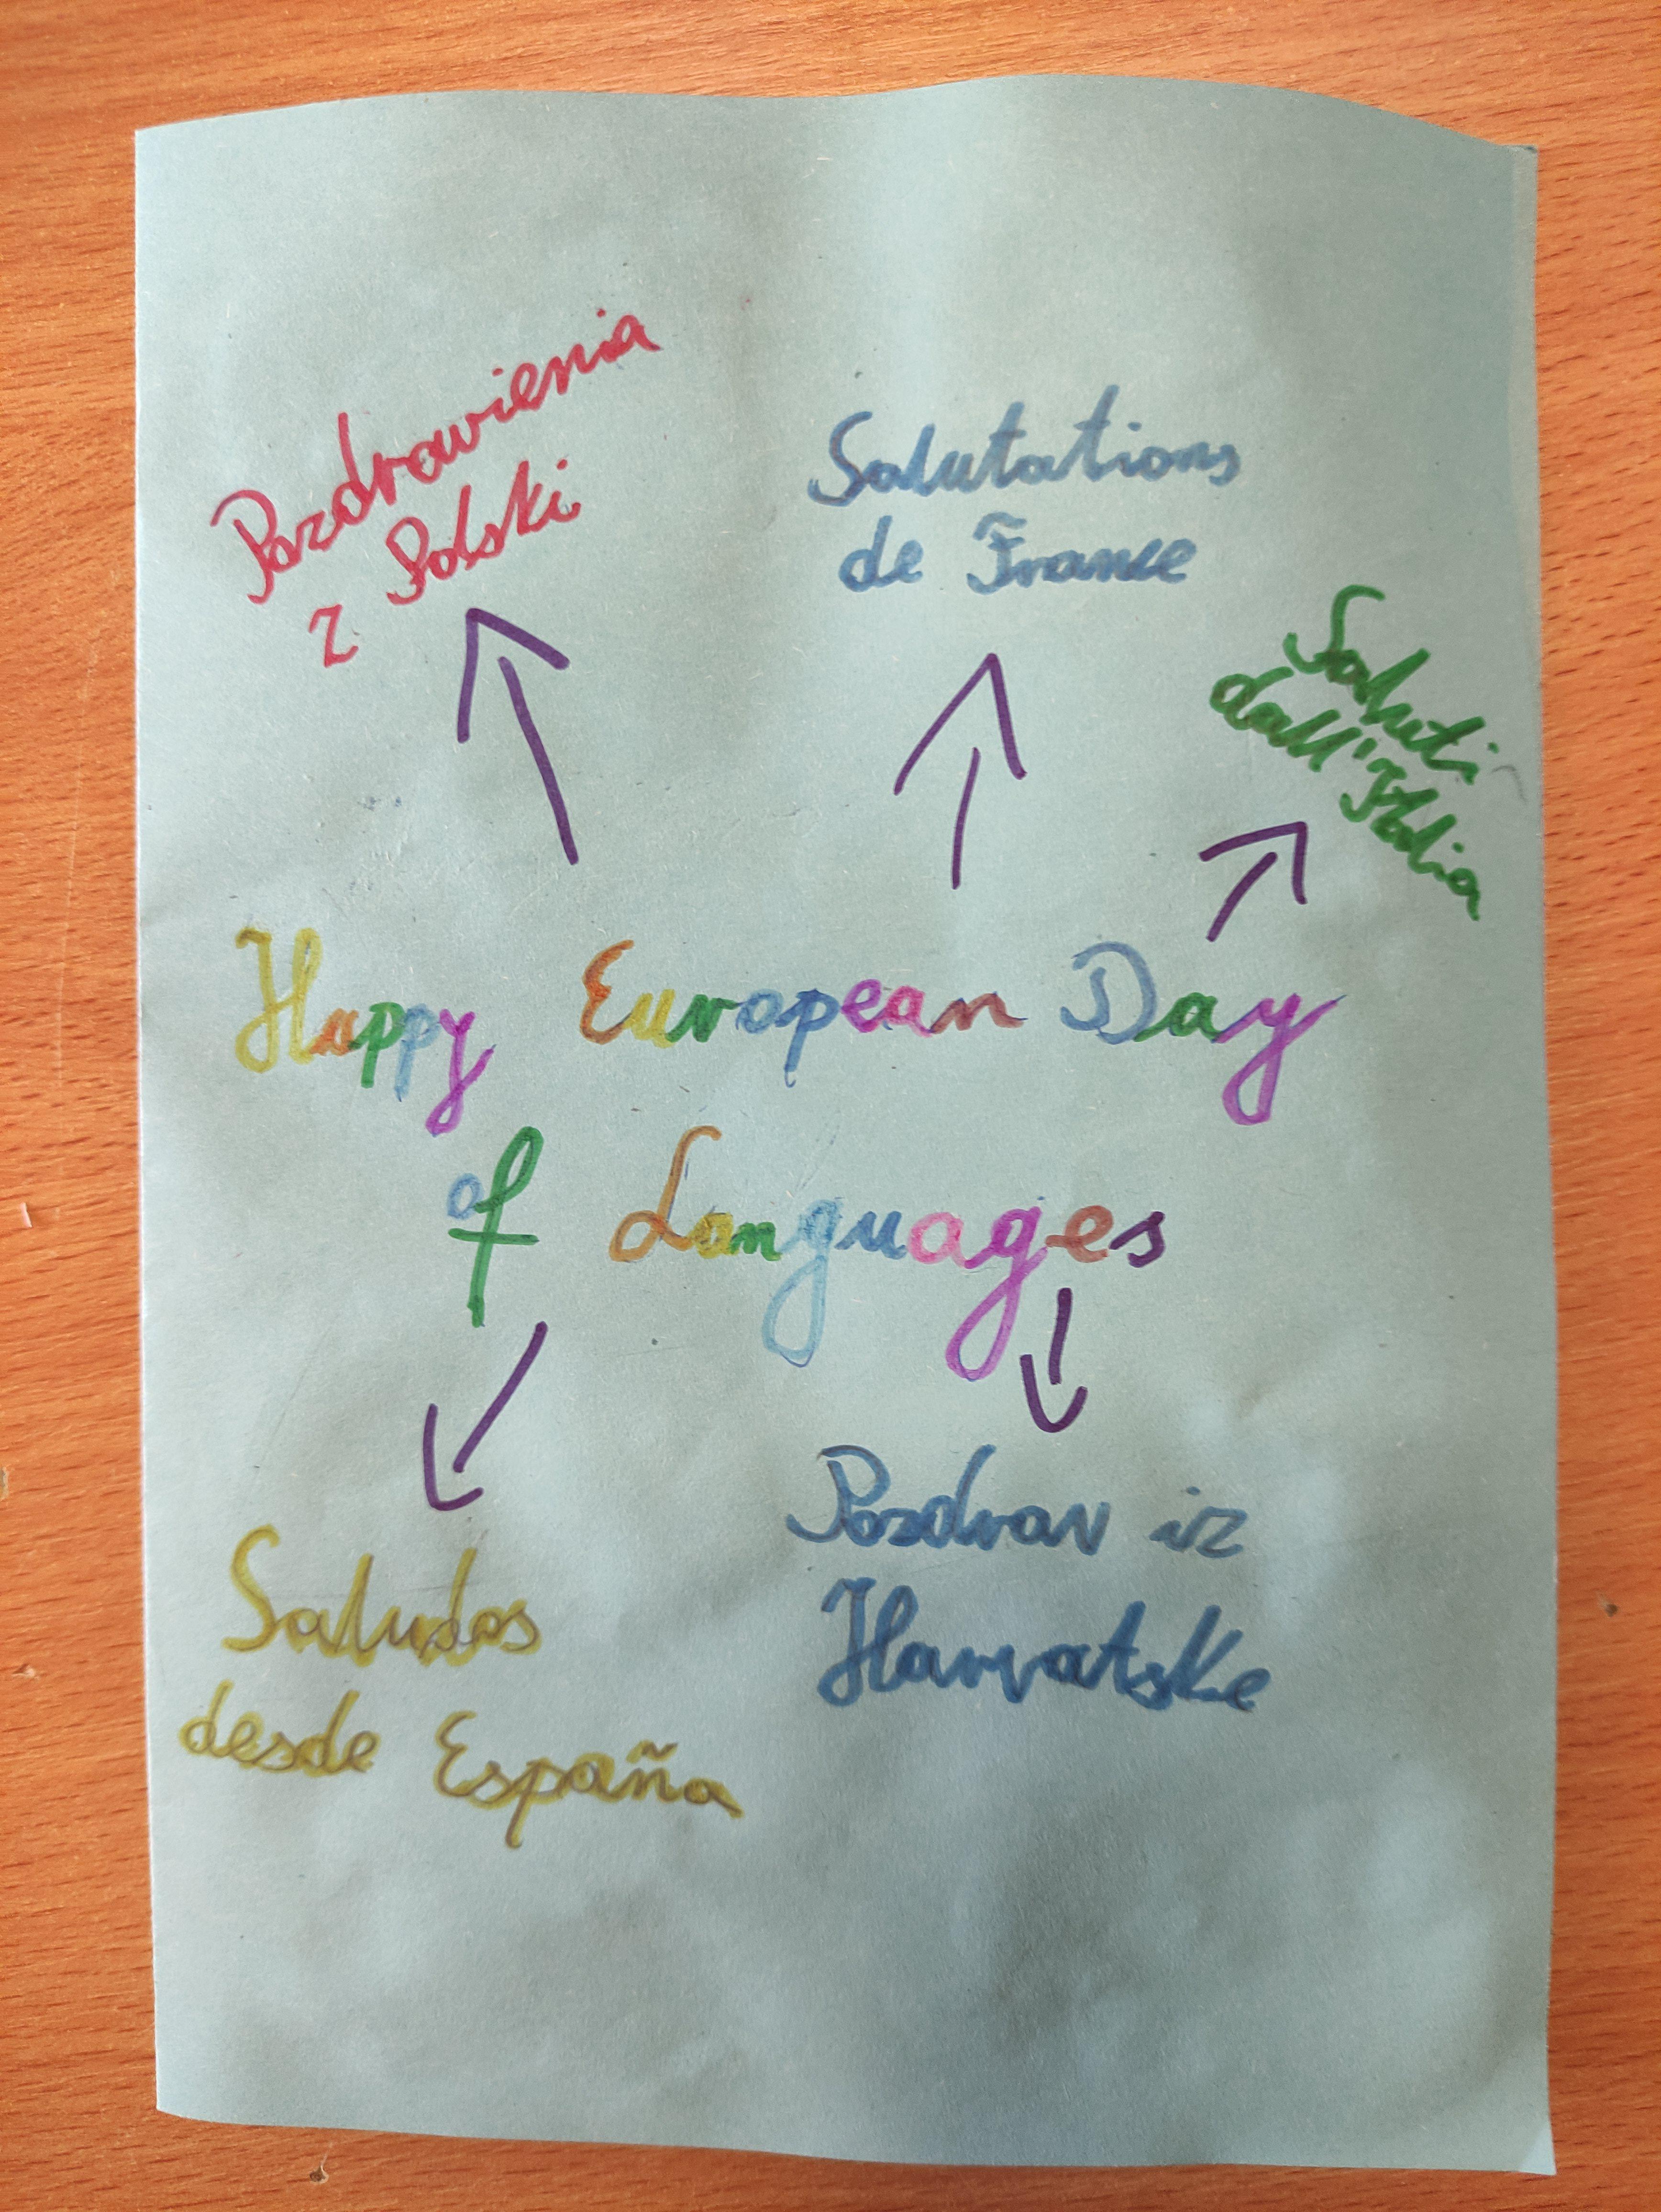 Pozdrowienia
z Polski
Salutations
de France
Saluti
dall'Italia
Happy European Day
of Languages
Saludos
desde España
Pozdrav iz
Harvatske